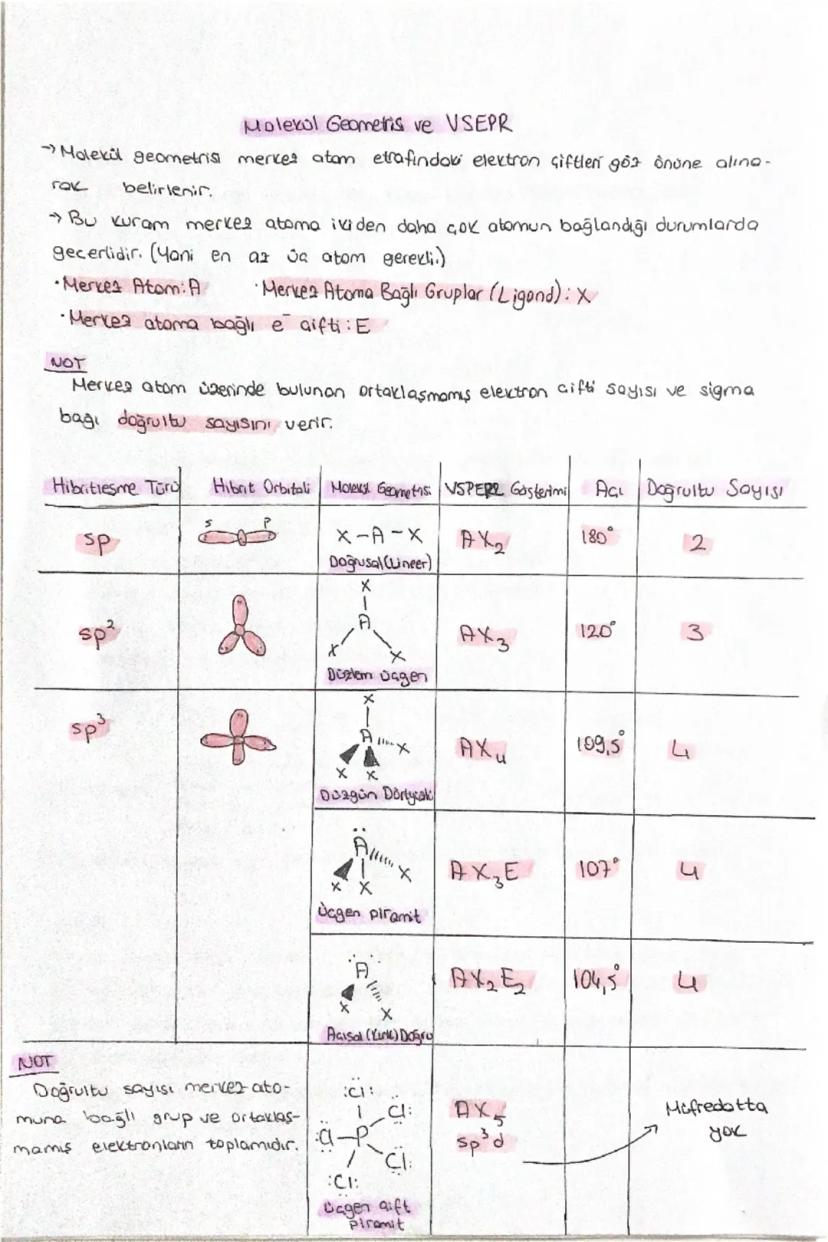 Molekül Geometrisi ve VSEPR
→ Molekül geometrisi merkez atom etrafındaki elektron çiftleri göz önüne alına-
rak belirlenir.
→ Bu kuram merkez atoma ikiden daha çok atomun bağlandığı durumlarda
geçerlidir. (Yani en az üç atom gerekli.)
• Merkez Atom: A • Merkez Atoma Bağlı Gruplar (Ligand): X
• Merkez atoma bağlı e⁻ çifti: E
NOT
Merkez atom üzerinde bulunan ortaklaşmamış elektron çifti sayısı ve sigma
bağı doğrultu sayısını verir.
Hibritleşme Türü Hibrit Orbitali Molekül Geometrisi VSPER Gösterimi Açı Doğrultu Sayısı
s p
sp X-A-X AX₂ 180° 2
Doğrusal (Lineer)
X
A
sp² AX₃ 120° 3
X X
Düzlem üçgen
X
sp³ A X AX₄ 109,5° 4
X X
Düzgün Dörtyüzlü
A
X AX₃E 107° 4
X X
Üçgen piramit
A AX₂E₂ 104,5° 4
X X
Açısal (Kırık) Doğru
NOT
Doğrultu sayısı merkez ato-
muna bağlı grup ve ortaklaş-
mamış elektronların toplamıdır.
:Cl:
Cl:
:Cl-P
Cl:
:Cl:
Üçgen çift
piramit
AX₅
sp³d
Müfredatta
yok